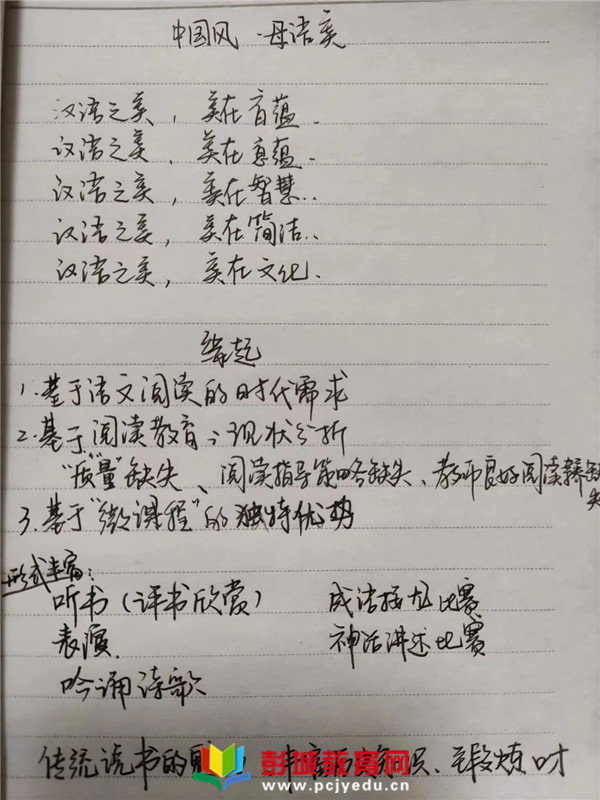 中国风 · 母语美
汉语之美，美在音蕴.
汉语之美，美在意蕴.
汉语之美，美在智慧..
汉语之美，美在简洁..
汉语之美，美在文化.
缘起
1. 基于语文阅读的时代需求
2. 基于阅读教育的现状分析
“质量”缺失、阅读指导策略缺失、教师良好阅读缺失
3. 基于“微课程”的独特优势
形式丰富：
听书（评书欣赏） 成语接龙比赛
表演. 神话讲述比赛
吟诵诗歌
传统说书的 丰富 识、锻炼口才
彭城教育网
www.pcjyedu.cn